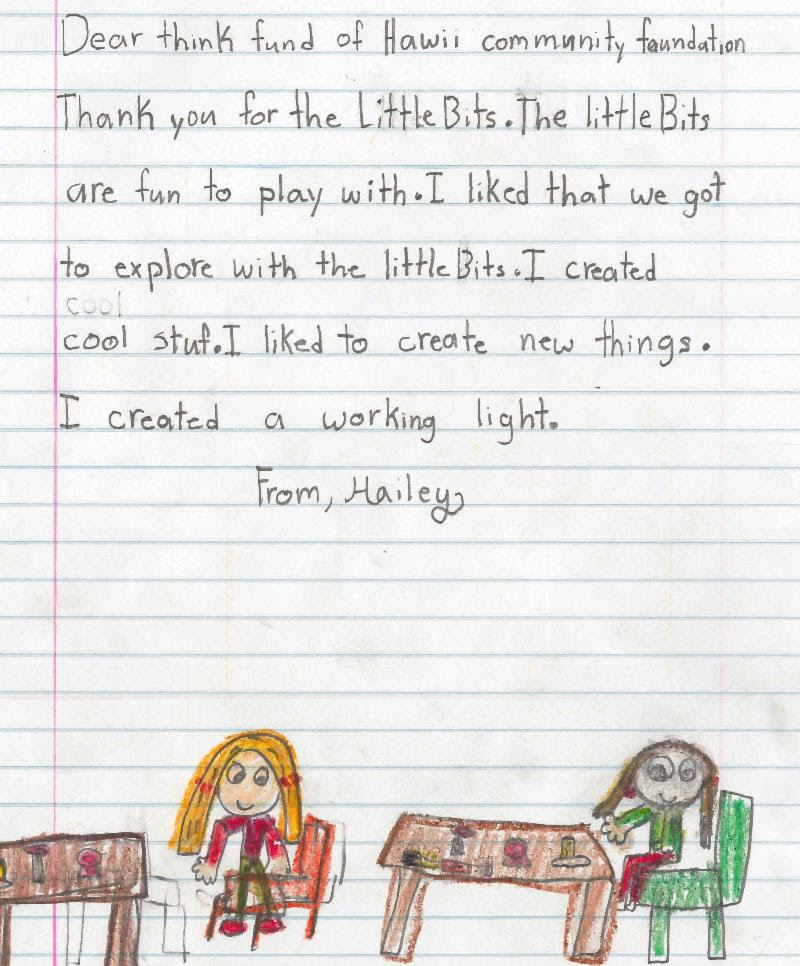 Dear think fund of Hawii community foundation
Thank you for the LittleBits. The littleBits
are fun to play with. I liked that we got
to explore with the littleBits. I created
cool
cool stuf. I liked to create new things.
I created a working light.
From, Hailey